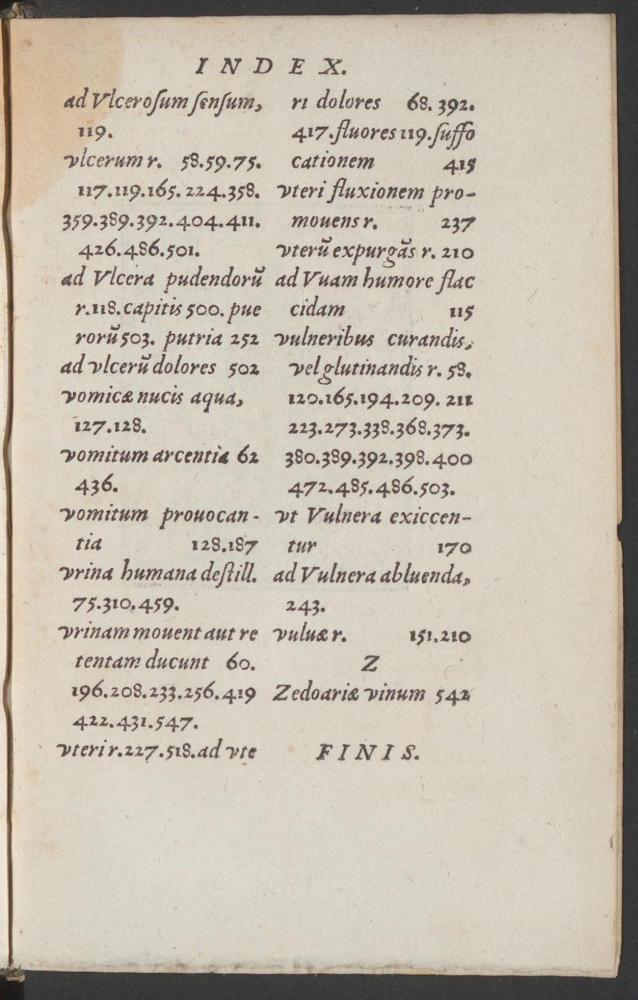 INDEX.
ad Vlcerosum sensum,
119.
vlcerum r. 58.59.75.
117.119.165.224.358.
359.389.392.404.411.
426.486.501.
ad Vlcera pudendorũ
r.118. capitis 500. pue
rorũ 503. putria 252
ad vlcerũ dolores 502
vomicæ nucis aqua,
127.128.
vomitum arcentia 62
436.
vomitum prouocan-
tia 128.187
vrina humana destill.
75.310.459.
vrinam mouent aut re
tentam ducunt 60.
196.208.233.256.419
422.431.547.
vteri r.227.518. ad vte
ri dolores 68.392.
417. fluores 119. suffo
cationem 415
vteri fluxionem pro-
mouens r. 237
vterũ expurgãs r. 210
ad Vuam humore flac
cidam 115
vulneribus curandis,
vel glutinandis r. 58.
120.165.194.209.211
223.273.338.368.373.
380.389.392.398.400
472.485.486.503.
vt Vulnera exiccen-
tur 170
ad Vulnera abluenda,
243.
vuluæ r. 151.210
Z
Zedoariæ vinum 542
FINIS.